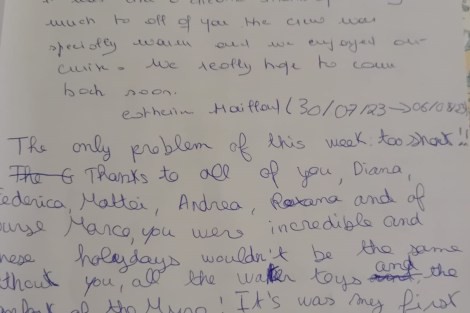 much to all of you the crew was
specially warm and we enjoyed our
cruise. We really hope to come
back soon.
(30/07/23 → 06/08/23
The only problem of this week: too short!!
Thanks to all of you, Diana,
ederica, Mattei, Andrea, Roxana and of
ourse Marco, you were incredible and
hese holydays wouldn't be the same
thout you, all the water toys and the
of the It's was my first